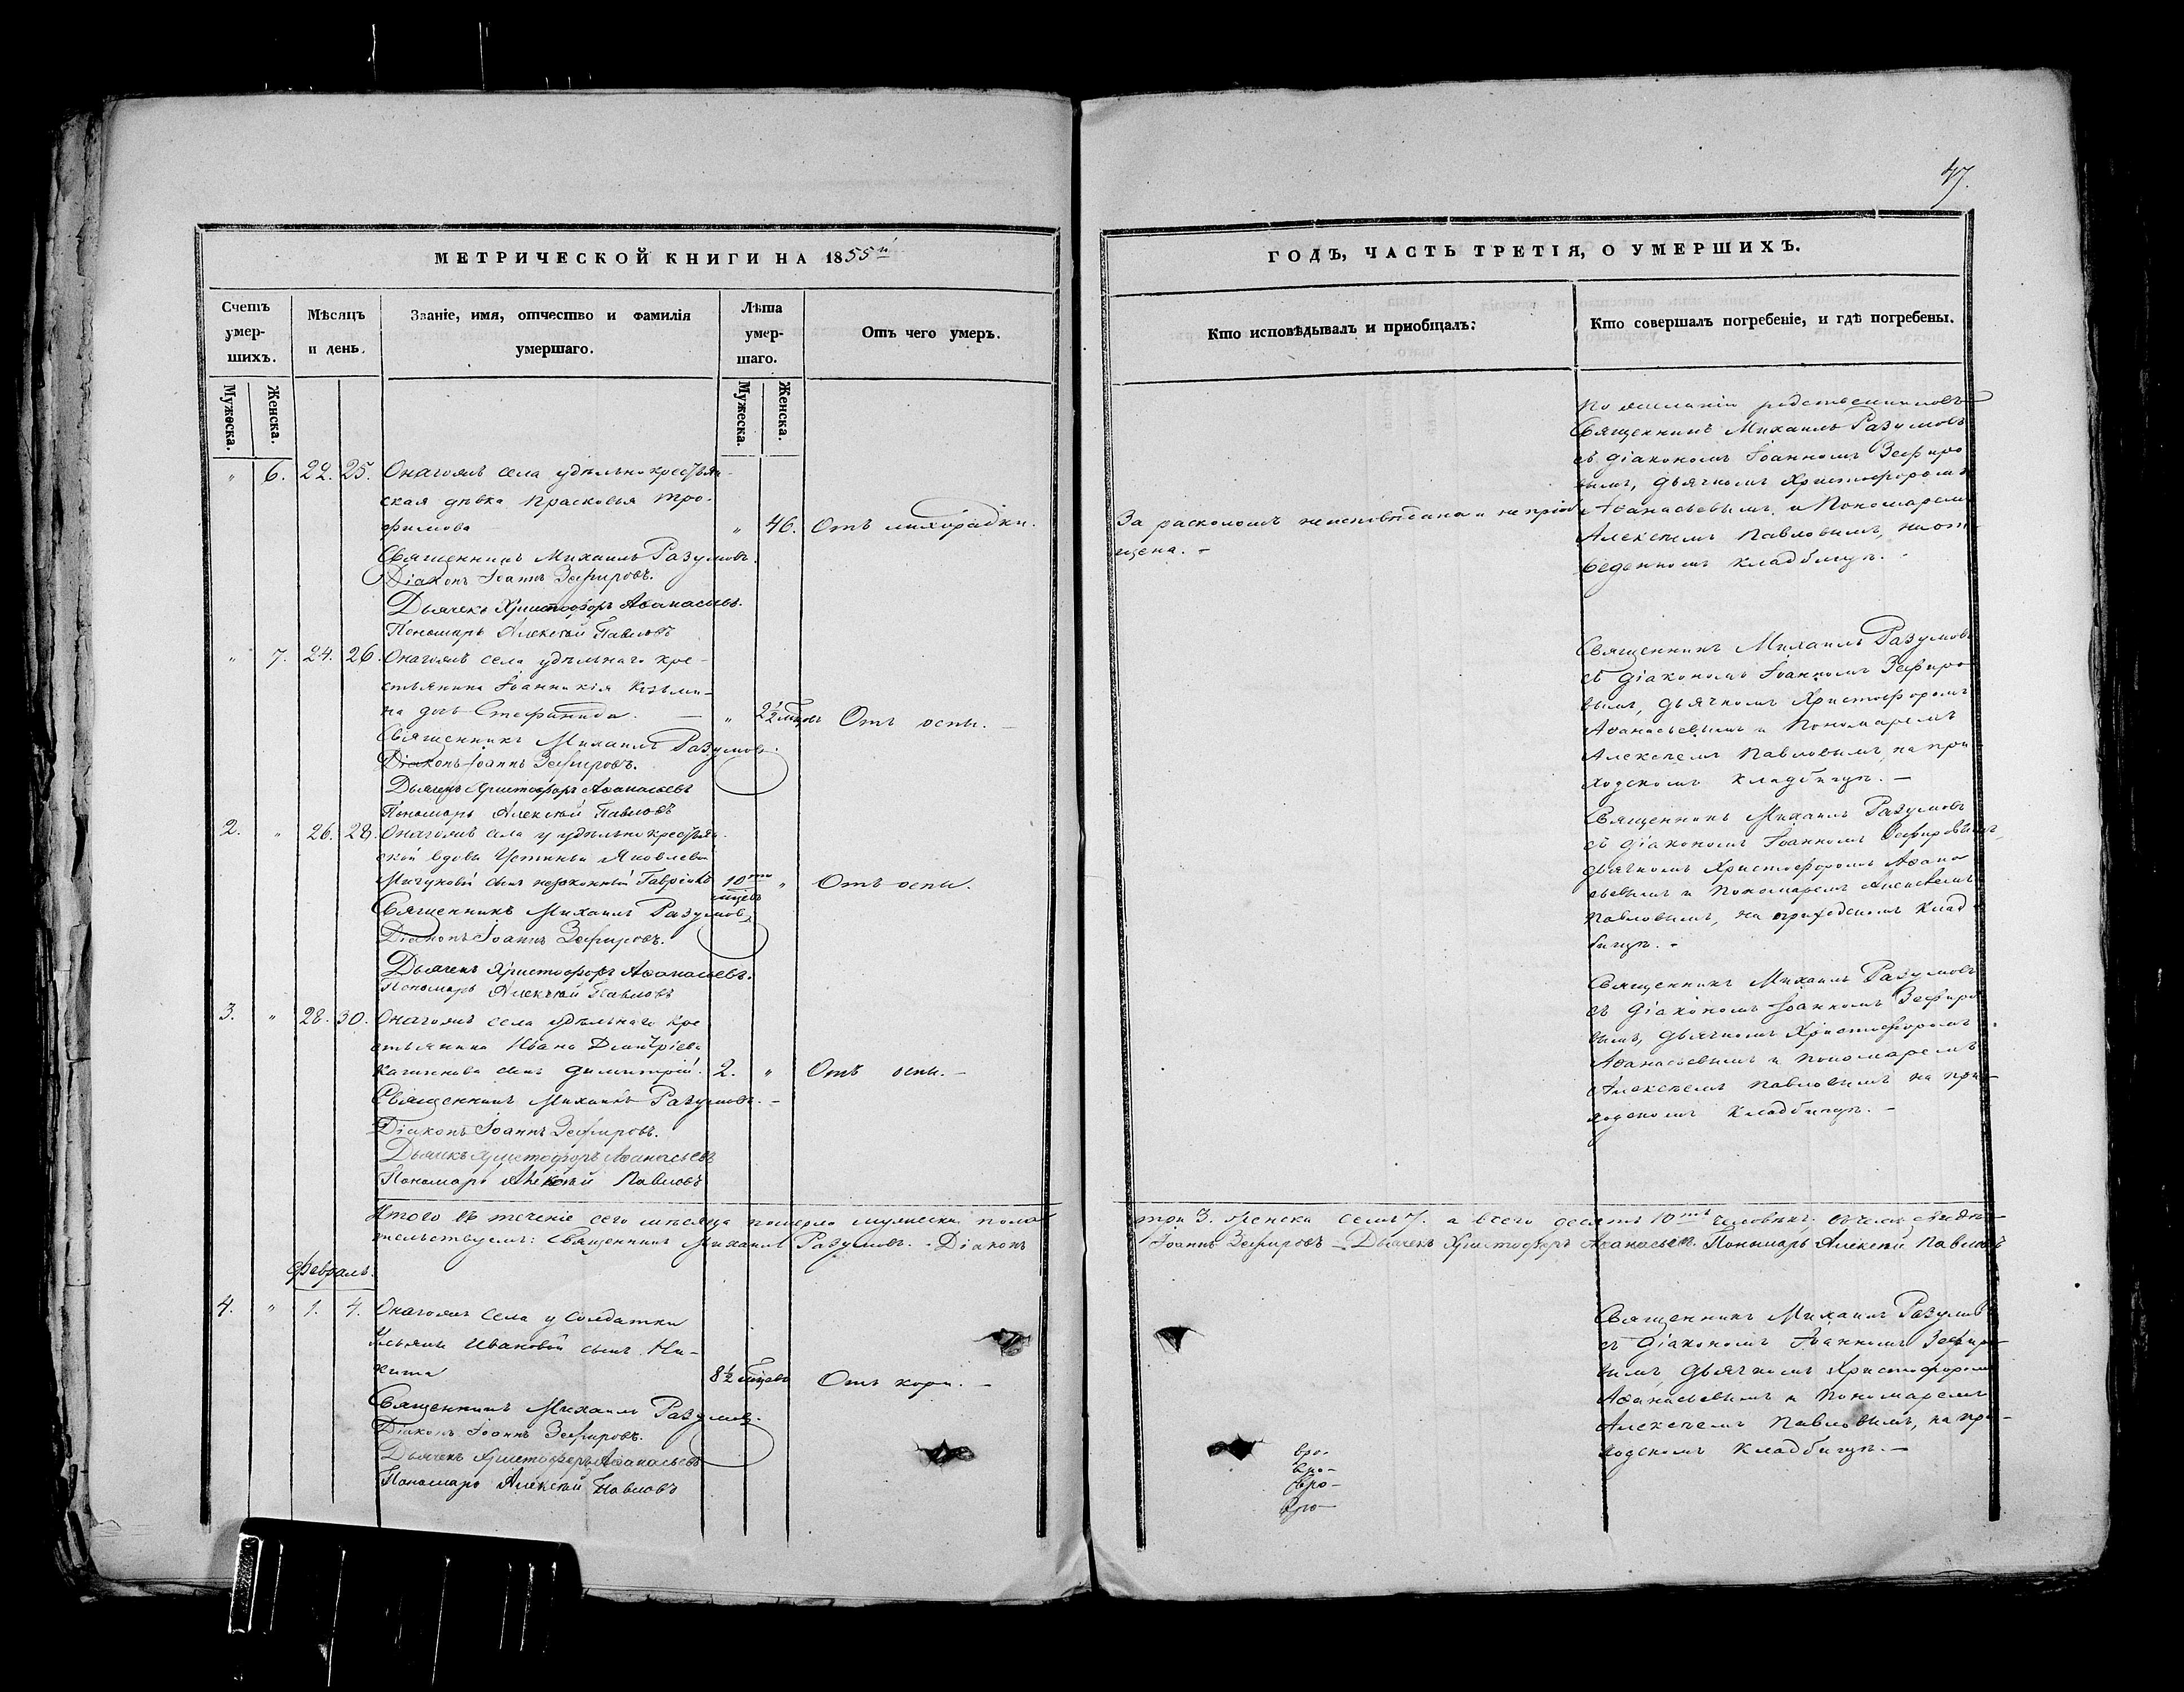 47.
МЕТРИЧЕСКОЙ КНИГИ НА 1855й
ГОДЪ, ЧАСТЬ ТРЕТІЯ, О УМЕРШИХЪ.
Счетъ умер-шихъ.
Мѣсяцъ и день.
Званіе, имя, отчество и фамилія умершаго.
Лѣта умер-шаго.
Отъ чего умеръ.
Кто исповѣдывалъ и пріобщалъ:
Кто совершалъ погребеніе, и гдѣ погребены.
Мужеска.
Женска.
Мужеска.
Женска.
" 6. 22. 25. Онагожъ села удѣльно крестьян-
ская дѣвка Прасковья Тро-
фимова " 46. Отъ лихорадки.
Священникъ Михаилъ Разумовъ.
Діаконъ Іоаннъ Зефировъ.
Дьячекъ Христофоръ Аѳанасьевъ.
Пономарь Алексѣй Павловъ
За расколомъ неисповѣдана и не пріоб
щена. -
По желанію родственниковъ
Священникъ Михаилъ Разумовъ
съ діакономъ Іоанномъ Зефиро
вымъ, дьячкомъ Христофоромъ
Аѳанасьевымъ и Пономаремъ
Алексѣемъ Павловымъ, на от-
веденномъ кладбищѣ. -
" 7. 24. 26. Онагожъ села удѣльнаго кре-
стьянина Іоанникія Козьми-
на дочь Стефанида. — " 2½ Отъ оспы. —
Священникъ Михаилъ Разумовъ.
Діаконъ Іоаннъ Зефировъ.
Дьячекъ Христофоръ Аѳанасьевъ
Пономарь Алексѣй Павловъ
Священникъ Михаилъ Разумовъ
съ діакономъ Іоанномъ Зефиро
вымъ, дьячкомъ Христофоромъ
Аѳанасьевымъ и Пономаремъ
Алексѣемъ Павловымъ, на при-
ходскомъ кладбищѣ. —
2. " 26. 28. Онагожъ села у удѣльно крестьян-
ской вдовы Устиньи Яковлевой
Мичуковой сынъ незаконный Гавріилъ 10ти мцевъ " Отъ оспы.
Священникъ Михаилъ Разумовъ
Діаконъ Іоаннъ Зефировъ.
Дьячекъ Христофоръ Аѳанасьевъ.
Пономарь Алексѣй Павловъ
Священникъ Михаилъ Разумовъ
съ діакономъ Іоанномъ Зефировымъ,
дьячкомъ Христофоромъ Аѳана
сьевымъ и Пономаремъ Алексѣемъ
Павловымъ, на приходскомъ клад-
бищѣ. -
3. " 28. 30. Онагожъ села удѣльнаго кре
стьянина Ивана Дмитріева
сынъ Димитрій. 2. " Отъ оспы. —
Священникъ Михаилъ Разумовъ. -
Діаконъ Іоаннъ Зефировъ.
Дьячекъ Христофоръ Аѳанасьевъ
Пономарь Алексѣй Павловъ
Священникъ Михаилъ Разумовъ
съ діакономъ Іоанномъ Зефиро
вымъ, дьячкомъ Христофоромъ
Аѳанасьевымъ и Пономаремъ
Алексѣемъ Павловымъ на при-
ходскомъ кладбищѣ. —
Итого въ теченіе сего мѣсяца померло мужеска пола три 3. женска семь 7. а всего десять 10ть человѣкъ. Въ чемъ свидѣ-
тельствуемъ: Священникъ Михаилъ Разумовъ. - Діаконъ Іоаннъ Зефировъ - Дьячекъ Христофоръ Аѳанасьевъ. Пономарь Алексѣй Павловъ
Февраль.
4. " 1. 4. Онагожъ села у солдатки
Ульяны Ивановой сынъ Ни-
кита 8½ мцевъ Отъ кори. —
Священникъ Михаилъ Разумовъ.
Діаконъ Іоаннъ Зефировъ.
Дьячекъ Христофоръ Аѳанасьевъ
Пономарь Алексѣй Павловъ
Священникъ Михаилъ Разумовъ
съ діакономъ Іоанномъ Зефиро-
вымъ, дьячкомъ Христофоромъ
Аѳанасьевымъ и Пономаремъ
Алексѣемъ Павловымъ, на при-
ходскомъ кладбищѣ. —